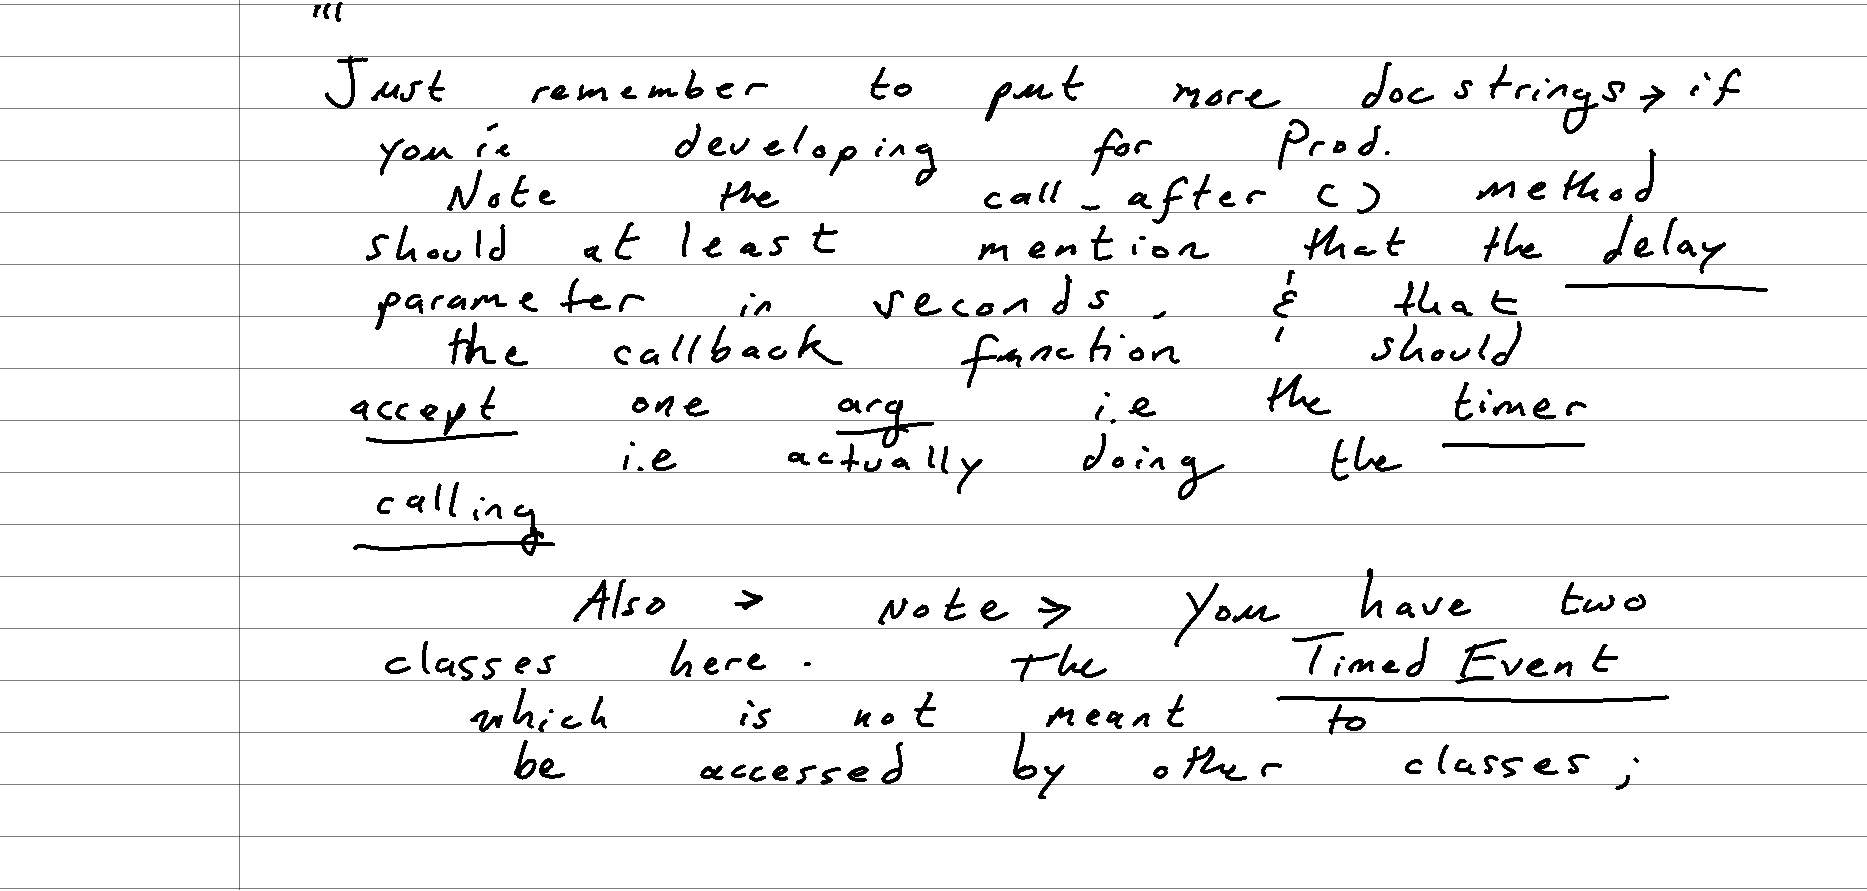 '''
Just remember to put more docstrings → if
you're developing for Prod.
Note the call_after () method
should at least mention that the delay
parameter in seconds, & that
the callback function should
accept one arg i.e the timer
i.e actually doing the
calling
Also → Note → You have two
classes here. The Timed Event
which is not meant to
be accessed by other classes;